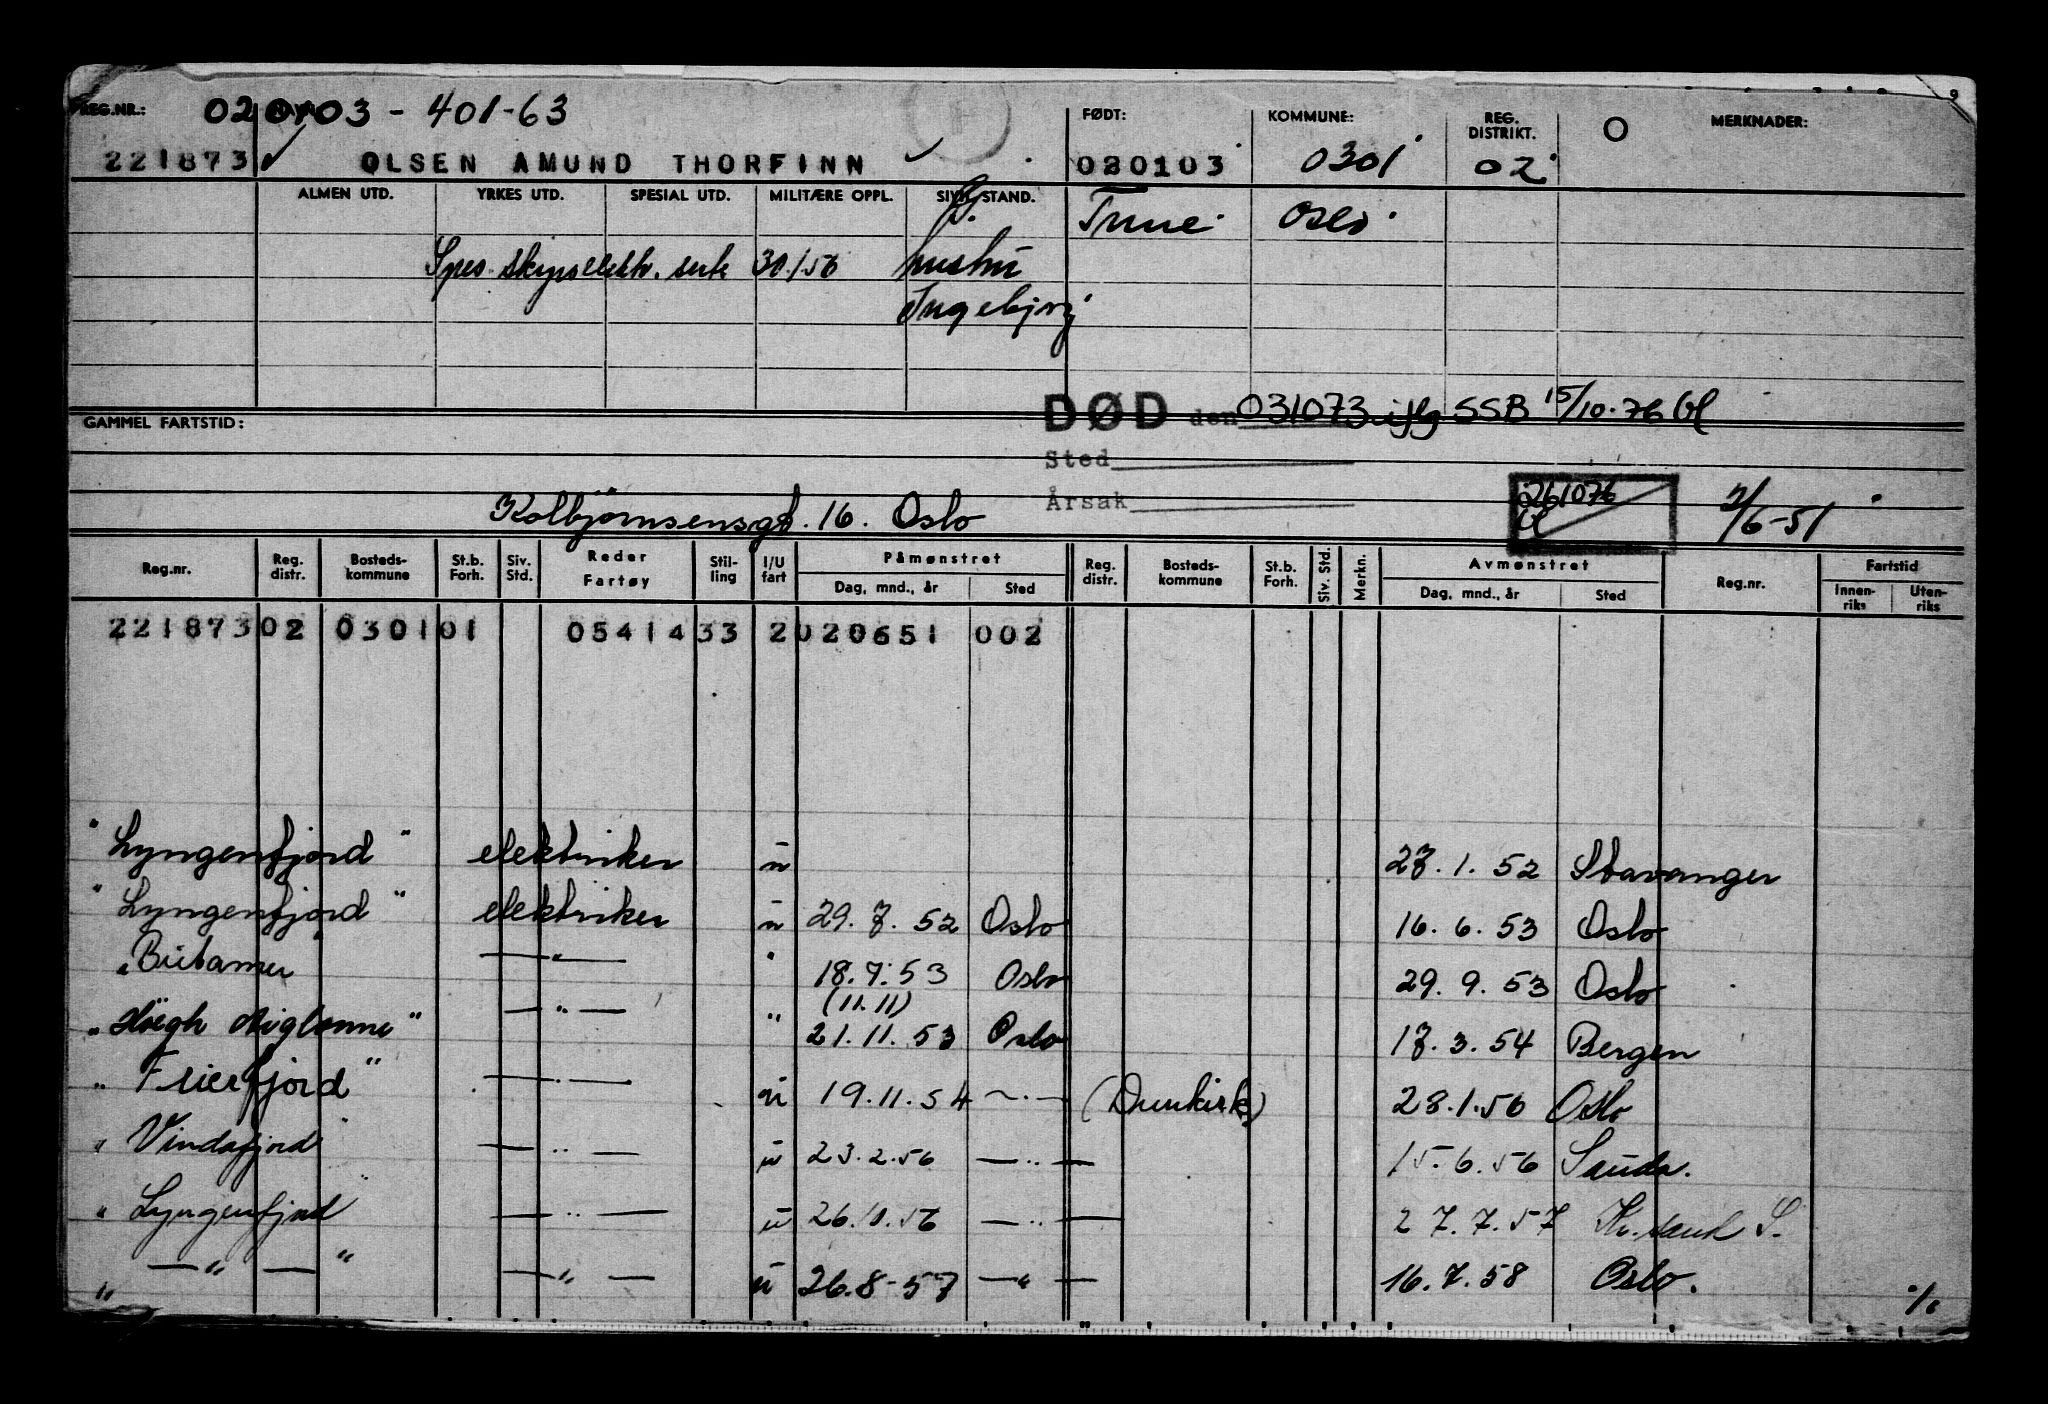 REG.NR.: 020103 - 401-63 FØDT: KOMMUNE: REG. DISTRIKT. O MERKNADER:
221873 ✓ OLSEN AMUND THORFINN ✓ 020103 0301 02
ALMEN UTD. YRKES UTD. SPESIAL UTD. MILITÆRE OPPL. SIVILSTAND. G. Oslo
Spes. skipselektr. sert. 30/1 56 hustru
Ingebjørg
DØD den 031073 iflg SSB 15/10-76
GAMMEL FARTSTID:
Sted
Årsak
261076
Kolbjörnsensgt. 16. Oslo 2/6-51
Reg.nr. Reg. distr. Bosteds- kommune St.b. Forh. Siv. Std. Reder Fartøy Stil- ling I/U fart Påmønstret Reg. distr. Bosteds- kommune St.b. Forh. Siv. Std. Merkn. Avmønstret Reg.nr. Fartstid
Dag, mnd., år Sted Dag, mnd., år Sted Innen- riks Uten- riks
221873 02 0301 01 05414 33 2 020651 002
"Lyngenfjord" elektriker u 27.1.52 Stavanger
"Lyngenfjord" elektriker u 29.7.52 Oslo 16.6.53 Oslo
" — " — " 18.7.53 Oslo 29.9.53 Oslo
(11.11)
"Höegh Aiglonne" — " — " 21.11.53 Oslo 17.3.54 Bergen
"Frierfjord" — " — u 19.11.54 — " — (Dunkirk) 28.1.56 Oslo
"Vindafjord" — " — u 23.2.56 — " — 15.6.56 Sauda.
"Lyngenfjord" — " — u 26.10.56 — " — 27.7.57 Kr.sand S.
" — " — " — " — u 26.8-57 — " — 16.7.58 Oslo.
./.